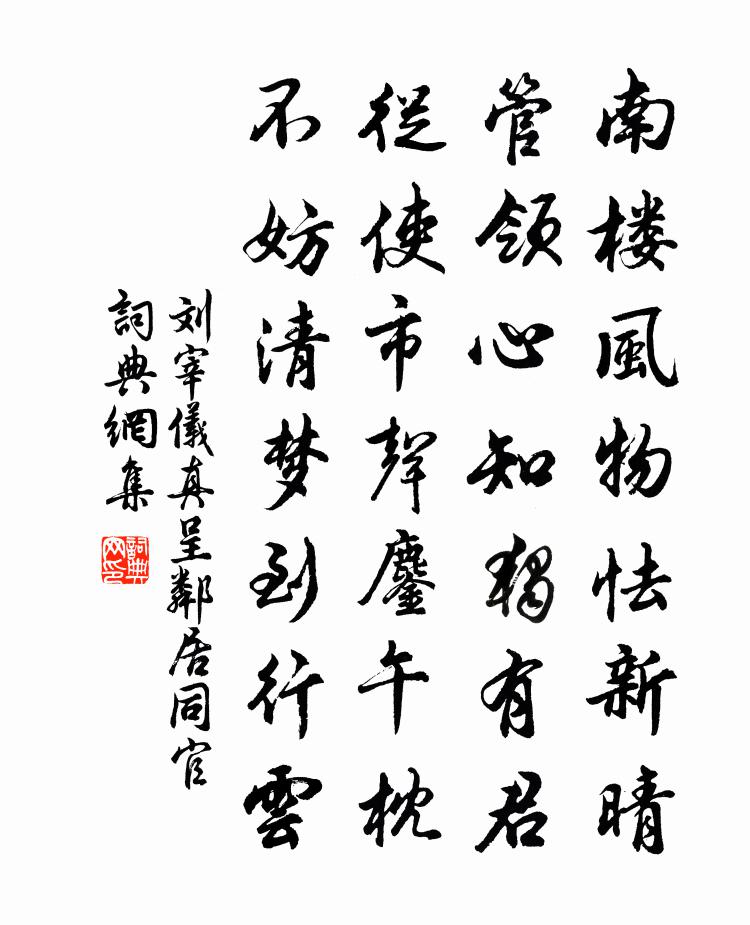 南楼風物怯新晴
管領心知獨有君
從使市聲鏖午枕
不妨清梦到行雲
刘宰儀真呈鄰居同官
詞典網集
詞典
网印